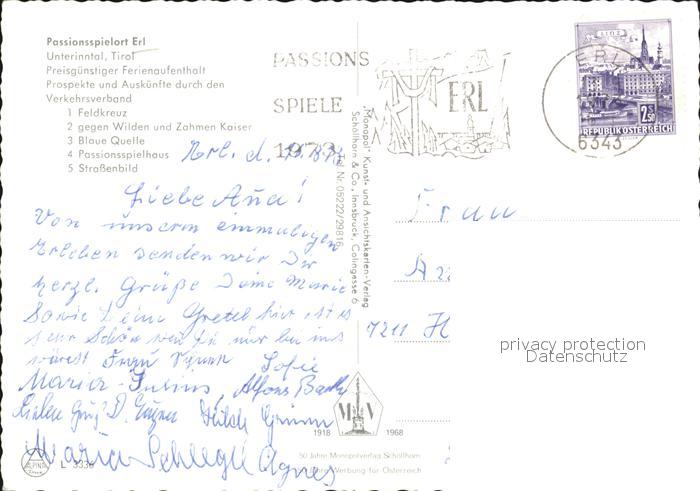 Passionsspielort Erl
Unterinntal, Tirol
Preisgünstiger Ferienaufenthalt
Prospekte und Auskünfte durch den
Verkehrsverband
1 Feldkreuz
2 gegen Wilden und Zahmen Kaiser
3 Blaue Quelle
4 Passionsspielhaus
5 Straßenbild
PASSIONS
SPIELE
1973
ERL
LINZ
2.50
REPUBLIK ÖSTERREICH
ERL
6343
Erl. d.
Liebe
Von unserm einmaligen
Erleben senden wir Dir
herzl. Grüße Deine Marie
Sowie Deine Gretel hier ist es
sehr Schön wen Du nur bei uns
wärest Frau
Sofie
Maria
Alfons
Hilde
Maria
Agnes
„Monopol" Kunst- und Ansichtskarten-Verlag
Schöllhorn & Co., Innsbruck, Colingasse 6
Tel. Nr. 05222/29816
Frau
7211 H
privacy protection
Datenschutz
M V
1918 1968
50 Jahre Monopolverlag Schöllhorn
50 Jahre Werbung für Österreich
ALPINA
L 3336